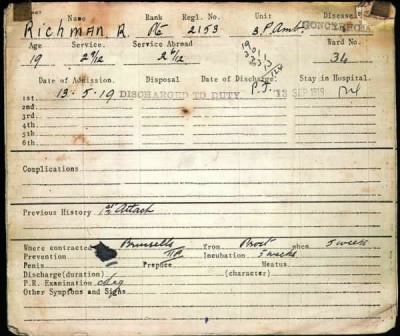 Name Rank Regl. No. Unit Disease
RICHMAN, R. Pte 2153 3.F.Amb. GONORRHOEA
Age Service. Service Abroad Ward No.
19 2 9/12 2 6/12 34
Date of Admission. Disposal Date of Discharge. Stay in Hospital.
1st 13.5.19 DISCHARGED TO DUTY 13 SEP 1919
2nd
3rd
4th
5th
6th
Complications
Previous History 1st Attack
Where contracted Brussells from Prost when 5 weeks
Prevention Incubation 5 weeks
Penis Prepuce Meatus.
Discharge(duration) (character)
P.R. Examination
Other Symptoms and Signs